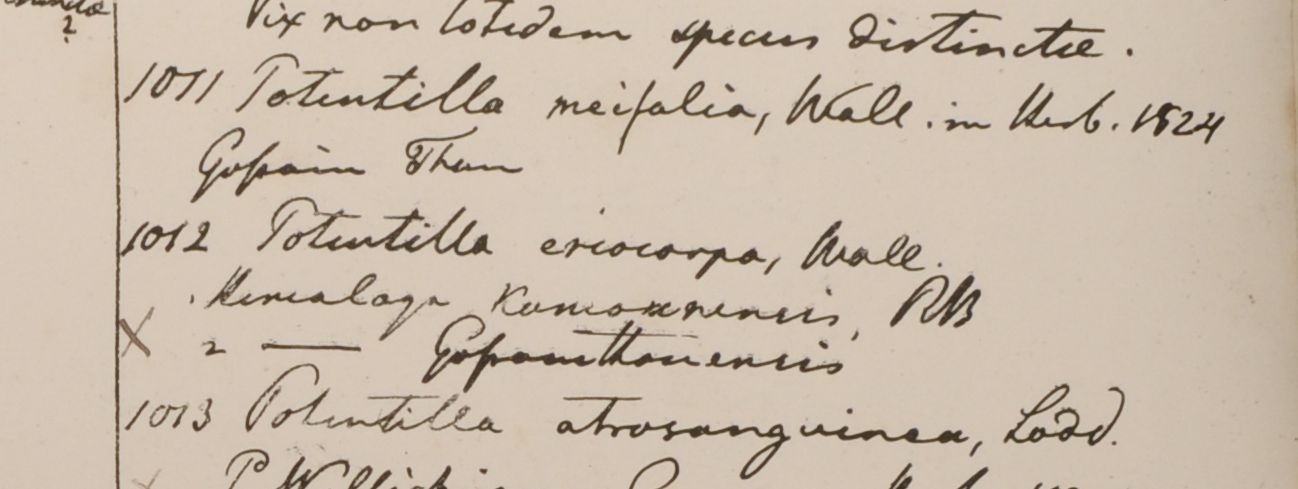 ?
Vix non totidem species distinctæ.
1011 Potentilla meifolia, Wall. in Herb. 1824
Gossain Than
1012 Potentilla eriocarpa, Wall.
1. Himalaya Kamaonensis, RB
X 2 — Gossainthanensis
1013 Potentilla atrosanguinea, Lodd.
P. Wallichi